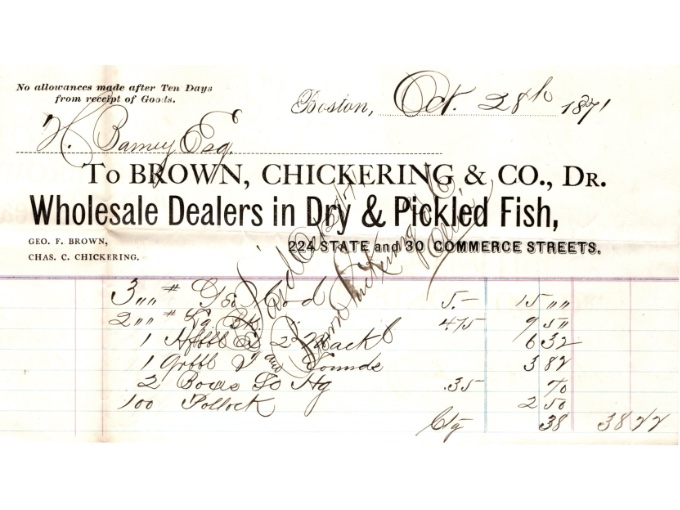 No allowances made after Ten Days
from receipt of Goods.
Boston, Oct. 28th 1871
H. Barney Esq.
To BROWN, CHICKERING & CO., DR.
Wholesale Dealers in Dry & Pickled Fish,
GEO. F. BROWN,
CHAS. C. CHICKERING.
224 STATE and 30 COMMERCE STREETS.
3 " " # Cod 5.- 15 " "
2 " " # 4.75 9 50
1 2 Mackl 6 32
1 and Sounds 3 82
2 Boxes Hg .35 70
100 Pollock 2 50
Ctg 38 38 22
Recd Payt
Brown Chickering & Co.